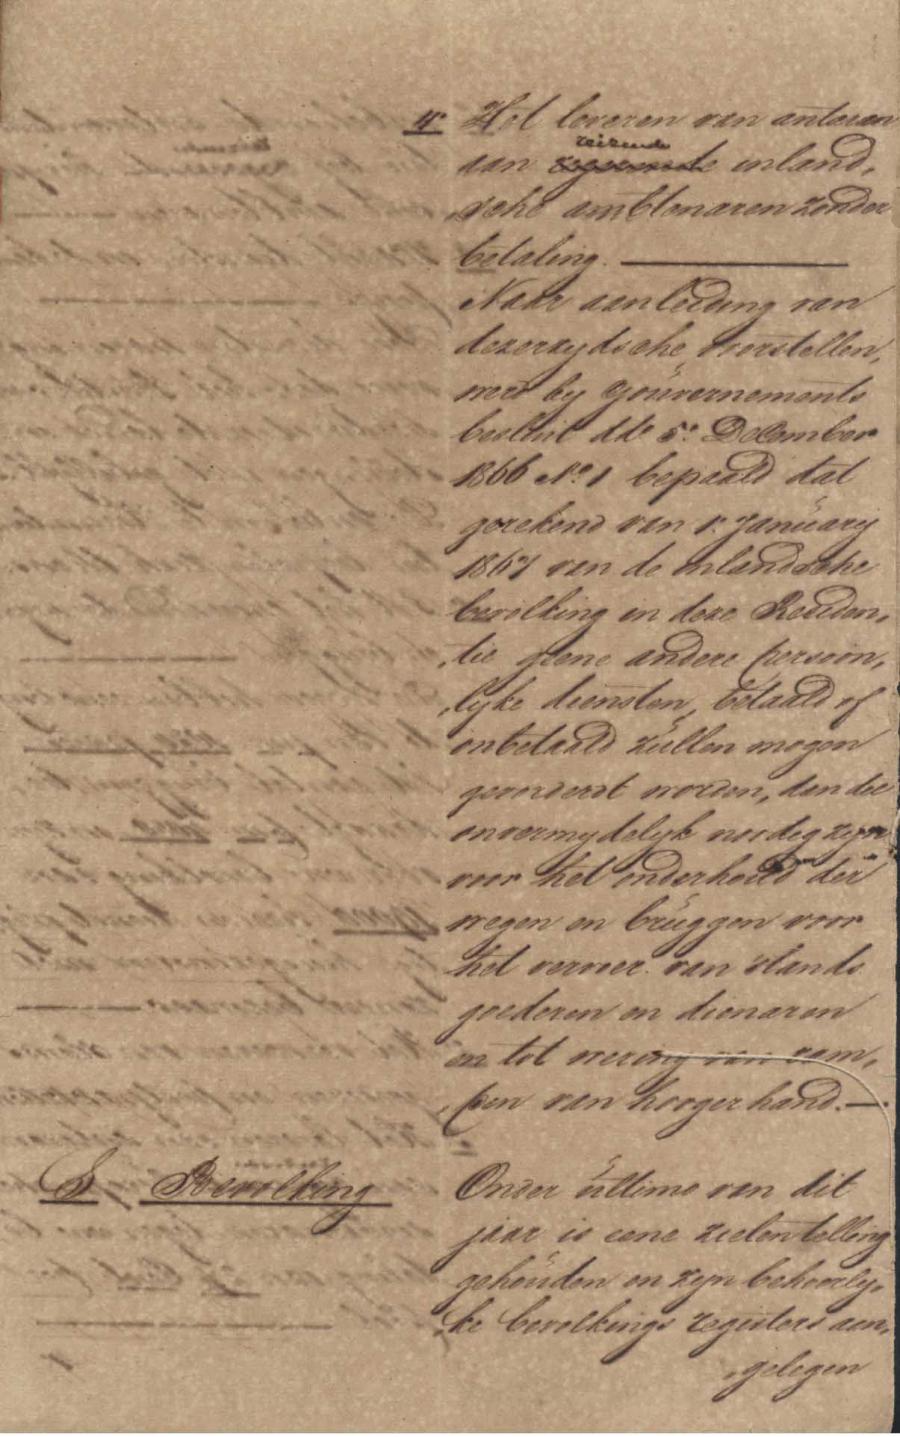 4e Het leveren van anteran
reizende
aan inland„
„sche ambtenaren zonder
betaling.
Naar aanleiding van
dezerzydsche voorstellen,
werd by Gouvernements
besluit dd. 5e December
1866 No 1 bepaald dat
gerekend van 1e January
1867 van de inlandsche
bevolking in deze Residen„
„tie geene andere persoon„
„lyke diensten, betaald of
onbetaald zullen mogen
gevorderd worden, dan die
onvermydelyk noodig zyn
voor het onderhoud der
wegen en bruggen voor
het vervoer van 's lands
goederen en dienaren
en tot wering van ram„
„pen van hooger hand.
Bevolking
Onder ultimo van dit
jaar is eene zielentelling
gehouden en zyn behoorly„
„ke bevolkings registers aan„
„gelegen